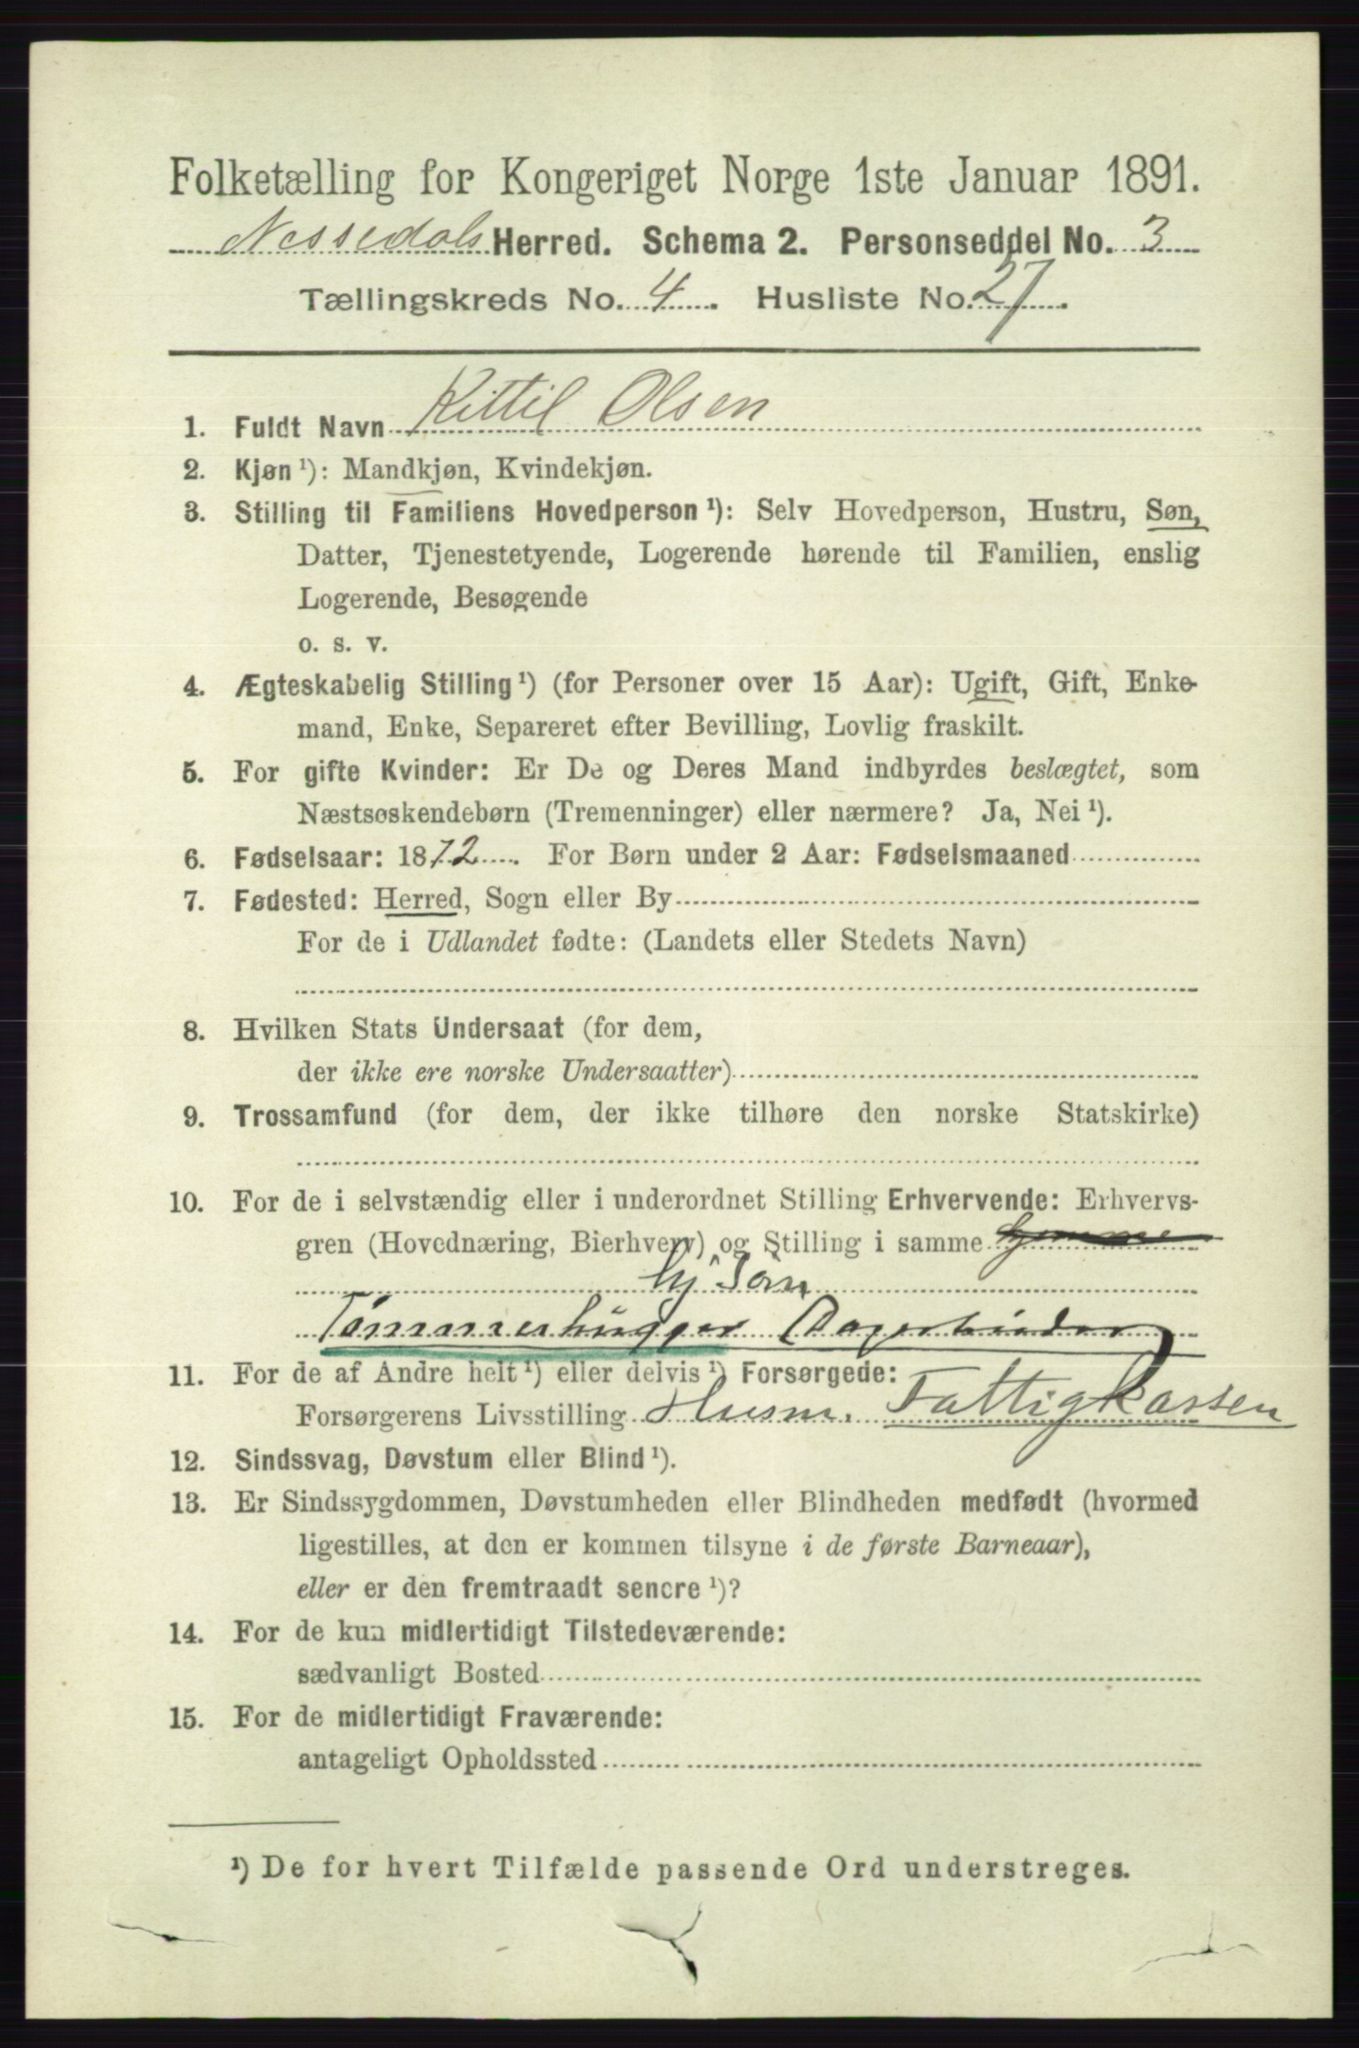 Folketælling for Kongeriget Norge 1ste Januar 1891.
Nissedals Herred. Schema 2. Personseddel No. 3
Tællingskreds No. 4. Husliste No. 27.
1. Fuldt Navn Kittil Olsen
2. Kjøn ¹): Mandkjøn, Kvindekjøn.
3. Stilling til Familiens Hovedperson ¹): Selv Hovedperson, Hustru, Søn,
Datter, Tjenestetyende, Logerende hørende til Familien, enslig
Logerende, Besøgende
o. s. v.
4. Ægteskabelig Stilling ¹) (for Personer over 15 Aar): Ugift, Gift, Enke-
mand, Enke, Separeret efter Bevilling, Lovlig fraskilt.
5. For gifte Kvinder: Er De og Deres Mand indbyrdes beslægtet, som
Næstsøskendebørn (Tremenninger) eller nærmere? Ja, Nei ¹).
6. Fødselsaar: 1872. For Børn under 2 Aar: Fødselsmaaned
7. Fødested: Herred, Sogn eller By
For de i Udlandet fødte: (Landets eller Stedets Navn)
8. Hvilken Stats Undersaat (for dem,
der ikke ere norske Undersaatter)
9. Trossamfund (for dem, der ikke tilhøre den norske Statskirke)
10. For de i selvstændig eller i underordnet Stilling Erhvervende: Erhvervs-
gren (Hovednæring, Bierhverv) og Stilling i samme hjemme
Hj. Søn
Tømmerhugger
11. For de af Andre helt ¹) eller delvis ¹) Forsørgede:
Forsørgerens Livsstilling Husm. Fattigkassen
12. Sindssvag, Døvstum eller Blind ¹).
13. Er Sindssygdommen, Døvstumheden eller Blindheden medfødt (hvormed
ligestilles, at den er kommen tilsyne i de første Barneaar),
eller er den fremtraadt senere ¹)?
14. For de kun midlertidigt Tilstedeværende:
sædvanligt Bosted
15. For de midlertidigt Fraværende:
antageligt Opholdssted
¹) De for hvert Tilfælde passende Ord understreges.